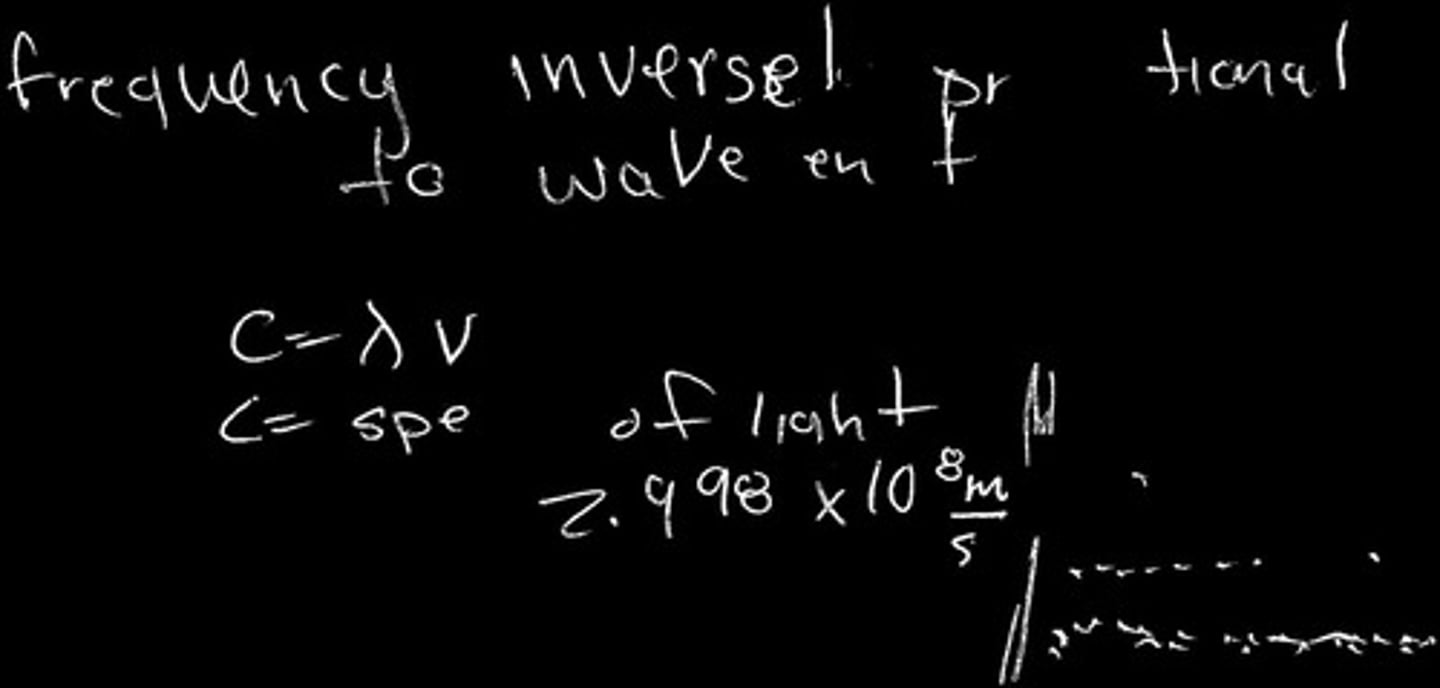 frequency inversel pr tional
to wave en t
C = λ ν
C = spe of light
2.998 × 10⁸ m/s